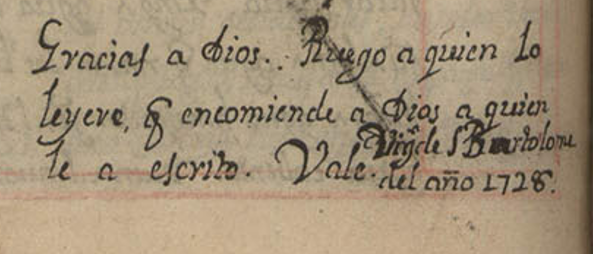 Gracias a Dios. Ruego a quien lo
leyere, q̃ encomiende a Dios a quien
le a escrito. Vale.
de S Bartolome
del año 1728.